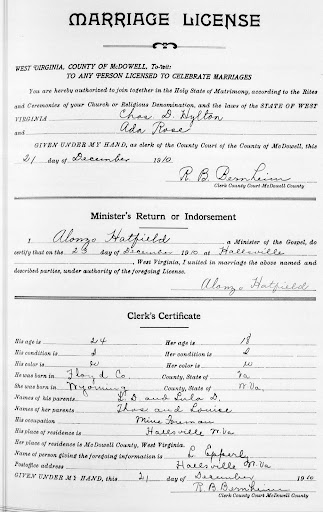 MARRIAGE LICENSE
WEST VIRGINIA, COUNTY OF McDOWELL, To-wit:
TO ANY PERSON LICENSED TO CELEBRATE MARRIAGES
You are hereby authorized to join together in the Holy State of Matrimony, according to the Rites
and Ceremonies of your Church or Religious Denomination, and the laws of the STATE OF WEST
VIRGINIA Chas. D. Hylton
and Ada Rose
GIVEN UNDER MY HAND, as clerk of the County Court of the County of McDowell, this
21 day of December 1910
R. B. Bernheim
Clerk County Court McDowell County
Minister's Return or Indorsement
I Alonzo Hatfield a Minister of the Gospel, do
certify that on the 23 day of December 1910 at Hallsville
, West Virginia, I united in marriage the above named and
described parties, under authority of the foregoing License.
Alonzo Hatfield
Clerk's Certificate
His age is 24 Her age is 18
His condition is S Her condition is S
His color is W Her color is W
He was born in Floyd Co. County, State of Va
She was born in Wyoming County, State of W.Va.
Names of his parents L D and Lula D.
Names of her parents Thos and Louise
His occupation Mine Foreman
His place of residence is Hallsville W.Va
Her place of residence is McDowell County, West Virginia.
Name of person giving the foregoing information is L Epperly
Postoffice address Hallsville W.Va
GIVEN UNDER MY HAND, this 21 day of December 1910
R. B. Bernheim
Clerk County Court McDowell County